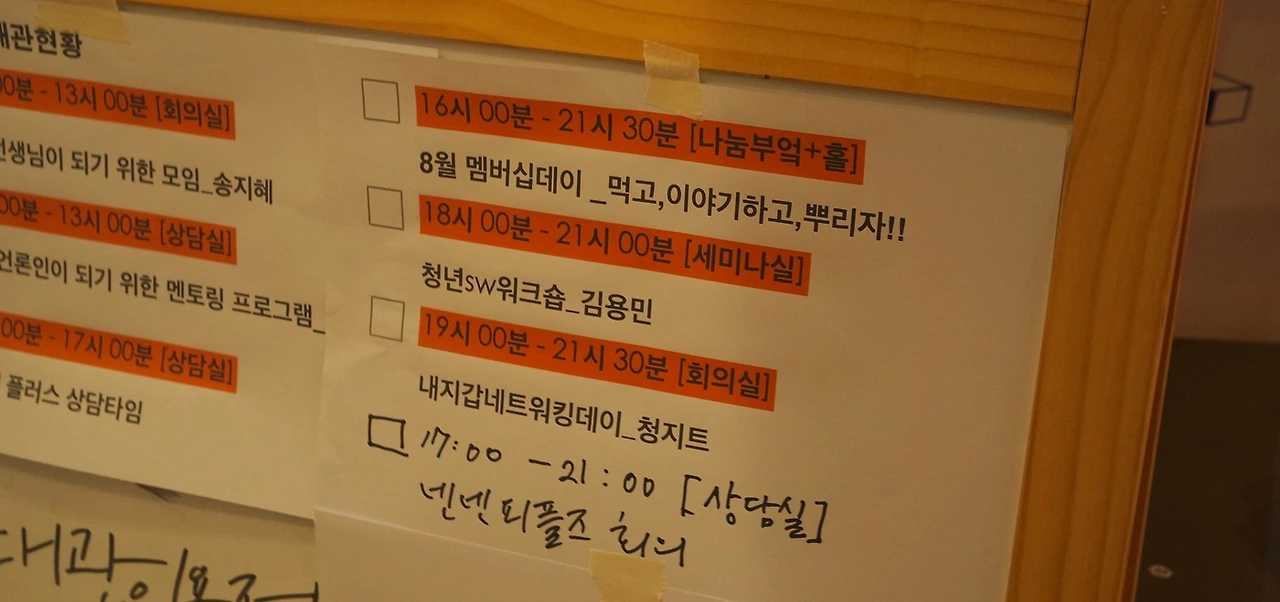 대관현황
00분 - 13시 00분 [회의실]
선생님이 되기 위한 모임_송지혜
00분 - 13시 00분 [상담실]
언론인이 되기 위한 멘토링 프로그램_
00분 - 17시 00분 [상담실]
플러스 상담타임
16시 00분 - 21시 30분 [나눔부엌+홀]
8월 멤버십데이 _먹고,이야기하고,뿌리자!!
18시 00분 - 21시 00분 [세미나실]
청년sw워크숍_김용민
19시 00분 - 21시 30분 [회의실]
내지갑네트워킹데이_청지트
17:00 - 21:00 [상담실]
넨넨피플즈 회의